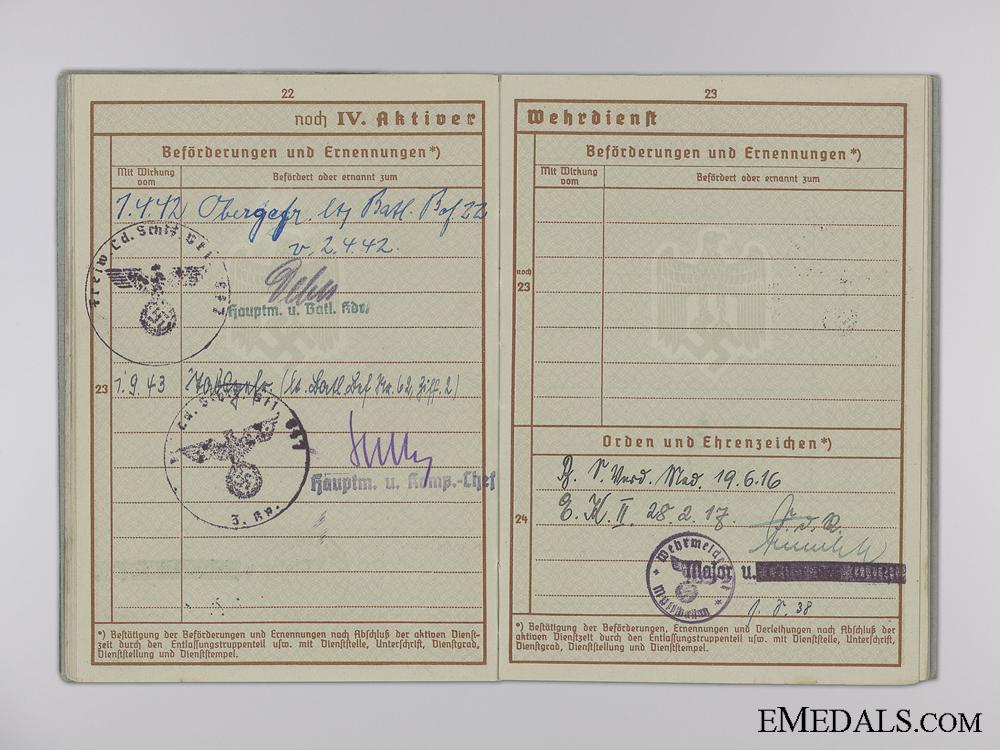 22
noch IV. Aktiver
Beförderungen und Ernennungen*)
Mit Wirkung vom
Befördert oder ernannt zum
1.4.42 Obergefr. lt. Batl. Bef 22
v. 2.4.42.
Hauptm. u. Batl. Kdr.
23
1.9.43 Stabsgefr. (lt. Batl. Bef Nr. 62, Ziff. 2)
Hauptm. u. Komp.-Chef
3. Kp.
*) Bestätigung der Beförderungen und Ernennungen nach Abschluß der aktiven Dienst-
zeit durch den Entlassungstruppenteil usw. mit Dienststelle, Unterschrift, Dienstgrad,
Dienststellung und Dienststempel.
23
Wehrdienst
Beförderungen und Ernennungen*)
Mit Wirkung vom
Befördert oder ernannt zum
noch
23
Orden und Ehrenzeichen*)
24
Verd. Med. 19.6.16
E. K. II 28.2.17.
Major u.
38
*) Bestätigung der Beförderungen, Ernennungen und Verleihungen nach Abschluß der
aktiven Dienstzeit durch den Entlassungstruppenteil usw. mit Dienststelle, Unterschrift,
Dienstgrad, Dienststellung und Dienststempel.
EMEDALS.COM